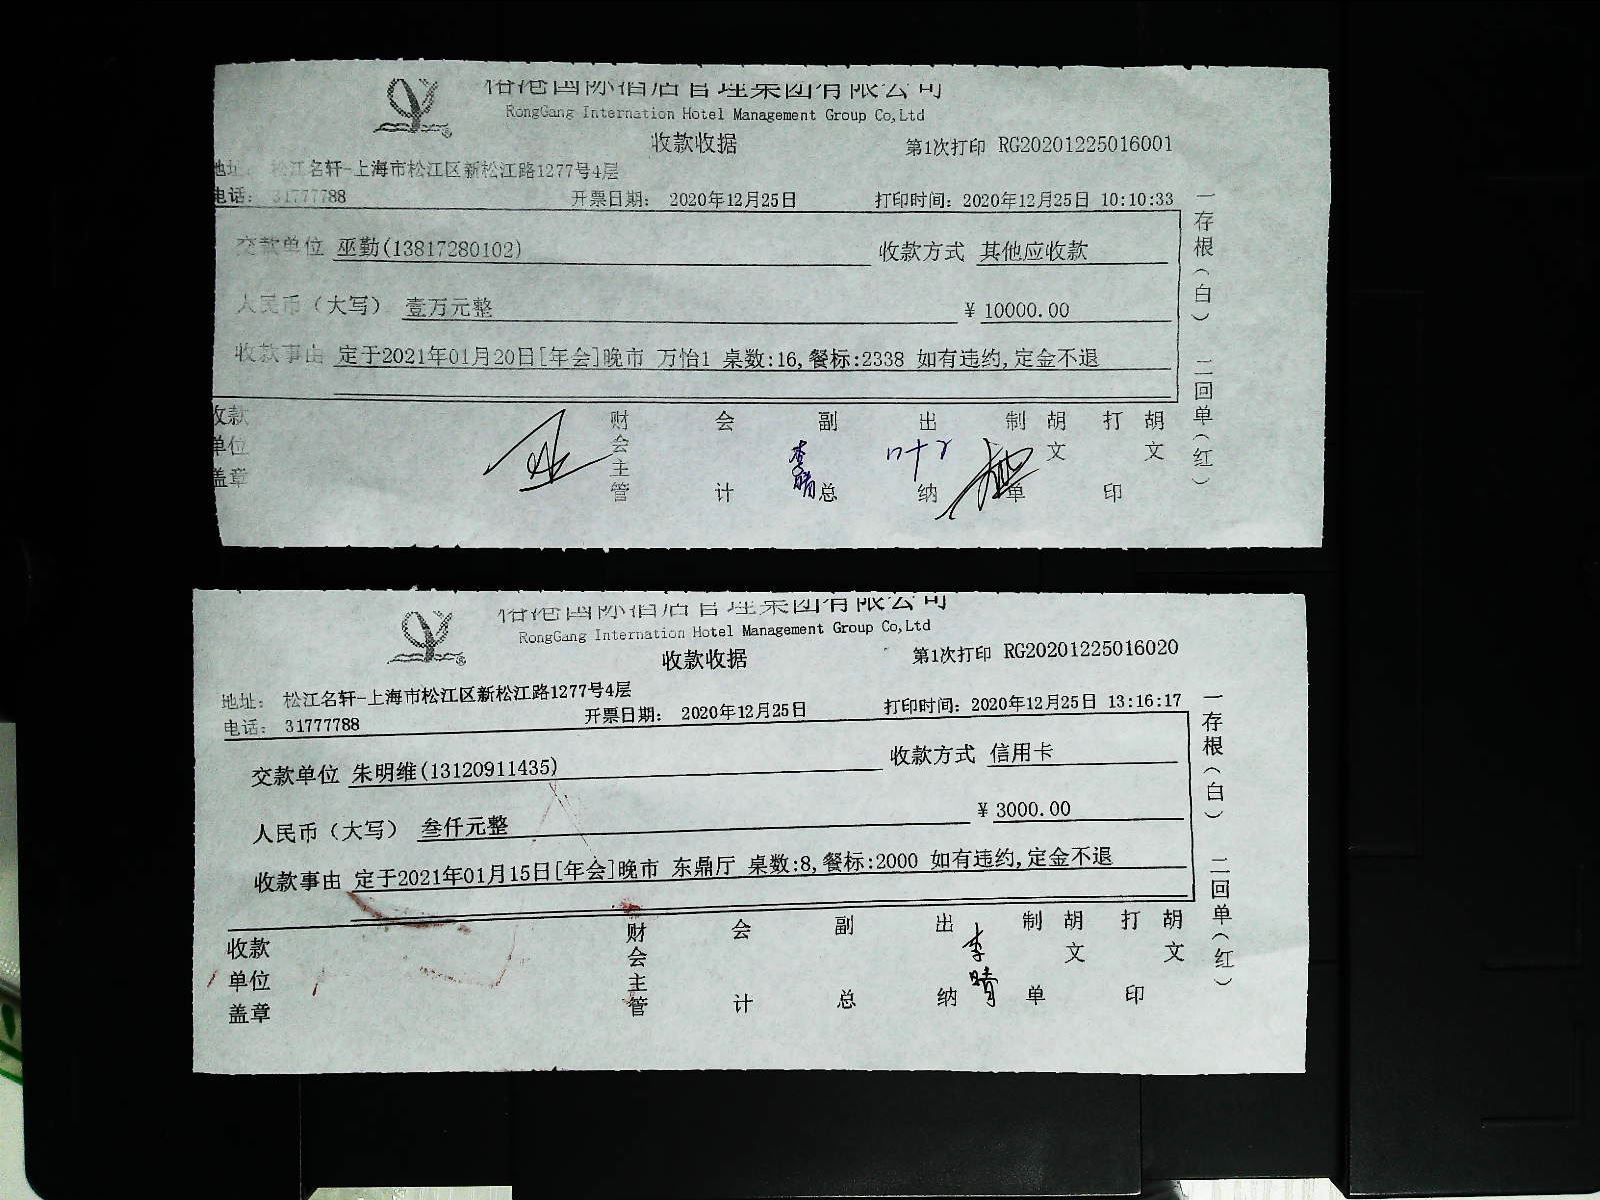 国际酒店管理集团有限公司
RongGang Internation Hotel Management Group Co,Ltd
收款收据
第1次打印 RG20201225016001
地址: 松江名轩-上海市松江区新松江路1277号4层
电话: 31777788 开票日期: 2020年12月25日 打印时间: 2020年12月25日 10:10:33
交款单位 巫勤(13817280102) 收款方式 其他应收款
人民币(大写) 壹万元整 ¥ 10000.00
收款事由 定于2021年01月20日[年会]晚市 万怡1 桌数:16,餐标:2338 如有违约,定金不退
收款单位盖章 财会主管 会计 副总 李晴 出纳 叶 制单 胡文 打印 胡文
一存根(白) 二回单(红)
国际酒店管理集团有限公司
RongGang Internation Hotel Management Group Co,Ltd
收款收据
第1次打印 RG20201225016020
地址: 松江名轩-上海市松江区新松江路1277号4层
电话: 31777788 开票日期: 2020年12月25日 打印时间: 2020年12月25日 13:16:17
交款单位 朱明维(13120911435) 收款方式 信用卡
人民币(大写) 叁仟元整 ¥ 3000.00
收款事由 定于2021年01月15日[年会]晚市 东鼎厅 桌数:8,餐标:2000 如有违约,定金不退
收款单位盖章 财会主管 会计 副总 出纳 李晴 制单 胡文 打印 胡文
一存根(白) 二回单(红)